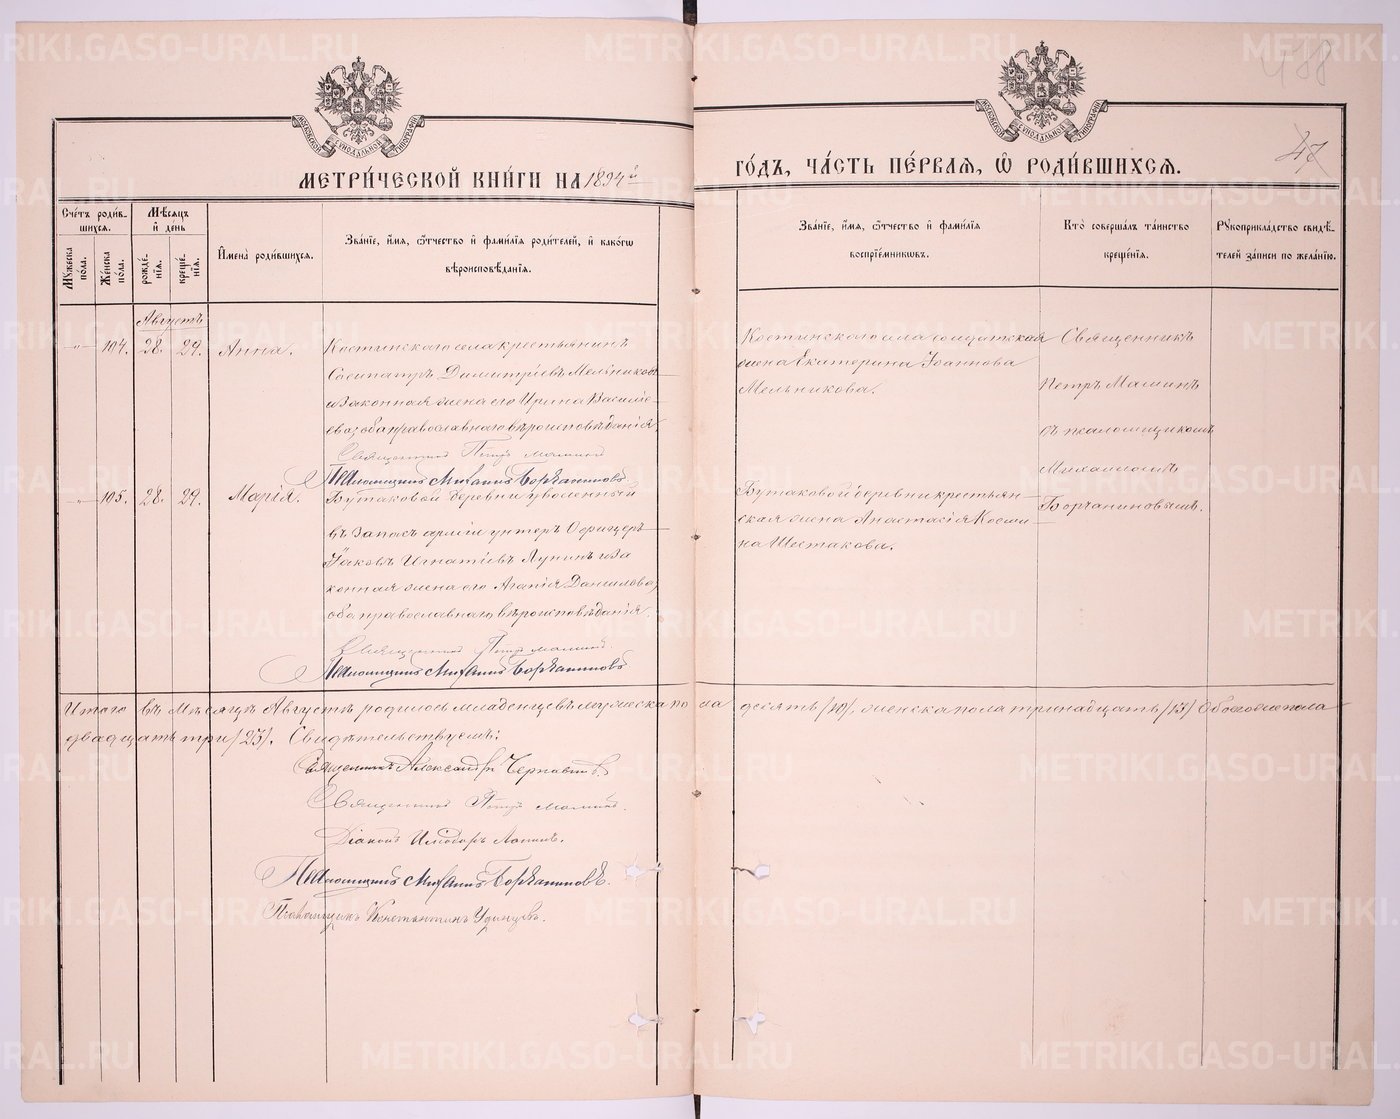 METRIKI.GASO-URAL.RU
488
47
МОСКОВСКОЙ СѴНОДАЛЬНОЙ ТИПОГРАФІИ
МОСКОВСКОЙ СѴНОДАЛЬНОЙ ТИПОГРАФІИ
МЕТРИ́ЧЕСКОЙ КНИ́ГИ НА 1894й
ГО́ДЪ, ЧА́СТЬ ПЕ́РВАЯ, Ѡ҆ РОДИ́ВШИХСЯ.
Сче́тъ роди́в-
шихся.
Мꙋ́жеска по́ла.
Же́нска по́ла.
Мѣ́сяцъ
и҆ де́нь
рожде́-нїя.
креще́-нїя.
И҆мена̀ роди́вшихся.
Зва́нїе, и҆́мя, ѻ҆́тчество и҆ фами́лїя роди́телей, и҆ како́гѡ
вѣроисповѣ́данїя.
Зва́нїе, и҆́мя, ѻ҆́тчество и҆ фами́лїя
воспрїе́мникѡвъ.
Кто̀ соверша́лъ та́инство
креще́нїя.
Рꙋкоприкла́дство свидѣ́-
телей за́писи по жела́нїю.
Августъ
104. 28. 29. Анна.
Костинскаго села крестьянинъ
Сосипатръ Димитріевъ Мельниковъ
и законная жена его Ирина Василіе-
ва, оба православнаго вѣроисповѣданія.
Священникъ Петръ Маминъ
Псаломщикъ Михаилъ Борчаниновъ
Костинскаго села солдатская
жена Екатерина Іоаннова
Мельникова.
Священникъ
Петръ Маминъ
съ псаломщикомъ
Михаиломъ
Борчаниновымъ.
105. 28. 29. Марія.
Бутаковой деревни уволенный
въ запасъ арміи унтеръ Офицеръ
Іаковъ Игнатіевъ Лунинъ и за
конная жена его Агапія Данилова,
оба православнаго вѣроисповѣданія.
Священникъ Петръ Маминъ.
Псаломщикъ Михаилъ Борчаниновъ
Бутаковой деревни крестьян-
ская жена Анастасія Косми-
на Шестакова.
Итого въ Мѣсяцѣ Августѣ родилось младенцевъ мужеска пола десять /10/, женска пола тринадцать /13/ Обоего пола
двадцать три /23/. Свидѣтельствуемъ:
Священникъ Александръ Черновѣтовъ.
Священникъ Петръ Маминъ.
Діаконъ Иліодоръ
Псаломщикъ Михаилъ Борчаниновъ.
Псаломщикъ Константинъ Удинцевъ.